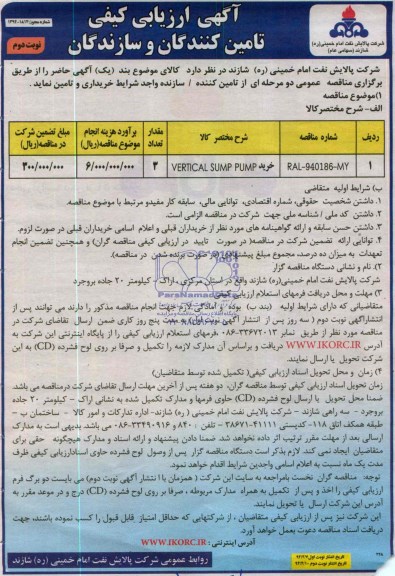 آگهی ارزیابی کیفی
تامین کنندگان و سازندگان
نوبت دوم
شرکت پالایش نفت امام خمینی(ره)
شازند (سهامی عام)
شرکت پالایش نفت امام خمینی (ره) شازند در نظر دارد کالای موضوع بند (یک) آگهی حاضر را از طریق
برگزاری مناقصه عمومی دو مرحله ای از تامین کننده / سازنده واجد شرایط خریداری و تامین نماید.
۱)موضوع مناقصه
الف- شرح مختصرکالا
ردیف شماره مناقصه شرح مختصر کالا مقدار تعداد برآورد هزینه انجام موضوع مناقصه(ریال) مبلغ تضمین شرکت در مناقصه(ریال)
۱ RAL-940186-MY خرید VERTICAL SUMP PUMP ۳ ۶/۰۰۰/۰۰۰/۰۰۰ ۳۰۰/۰۰۰/۰۰۰
ب) شرایط اولیه متقاضی
۱. داشتن شخصیت حقوقی، شماره اقتصادی، توانایی مالی، سابقه کار مفیدو مرتبط با موضوع مناقصه.
۲. داشتن کد ملی / شناسه ملی جهت شرکت در مناقصه الزامی است.
۳. داشتن حسن سابقه و ارائه گواهینامه های مورد نظر از خریداران قبلی و اعلام اسامی خریداران قبلی در صورت لزوم.
۴. توانایی ارائه تضمین شرکت در مناقصه( در صورت تایید در ارزیابی کیفی مناقصه گران) و همچنین تضمین انجام
تعهدات به میزان ده درصد، مجموع مبلغ پیشنهادی (در صورت برنده شدن در مناقصه).
۲) نام و نشانی دستگاه مناقصه گزار
شرکت پالایش نفت امام خمینی(ره) شازند واقع در استان مرکزی، اراک - کیلومتر ۲۰ جاده بروجرد
۳) مهلت و محل دریافت فرمهای استعلام ارزیابی کیفی
متقاضیانی که دارای شرایط اولیه (بند ب) بوده و آمادگی لازم جهت انجام مناقصه مذکور را دارند می توانند پس از
انتشارآگهی نوبت دوم ( سه روز پس از انتشار آگهی نوبت اول) به مدت پنج روز کاری ضمن ارسال تقاضای شرکت در
مناقصه مورد نظر از طریق نمابر ۳۳۶۷۲۰۱۳-۰۸۶، فرمهای استعلام ارزیابی کیفی را از پایگاه اینترنتی این شرکت به
آدرس WWW.IKORC.IR دریافت و براساس آن مدارک لازمه را تکمیل و صرفا بر روی لوح فشرده (CD) به این
شرکت تحویل یا ارسال نمایند.
۴) زمان و محل تحویل اسناد ارزیابی کیفی( تکمیل شده توسط متقاضیان)
زمان تحویل اسناد ارزیابی کیفی توسط مناقصه گران، دو هفته پس از آخرین مهلت ارسال تقاضای شرکت درمناقصه می باشد.
ضمنا محل تحویل یا ارسال لوح فشرده (CD) حاوی فرمها و مدارک تکمیل شده به نشانی اراک - کیلومتر ۲۰ جاده
بروجرد - سه راهی شازند - شرکت پالایش نفت امام خمینی ( ره) شازند- اداره تدارکات و امور کالا - ساختمان ب -
طبقه همکف اتاق ۱۱۸- کدپستی ۴۱۱۱۱-۳۸۶۷۱ - تلفن : ۸۲۰ و ۳۳۴۹۰۹۱۶-۰۸۶ می باشد بدیهی است به مدارک
ارسالی بعد از مهلت مقرر ترتیب اثر داده نخواهد شد. ضمنا دادن پیشنهاد و ارائه اسناد و مدارک هیچگونه حقی برای
متقاضیان ایجاد نمی کند. لازم بذکر است دستگاه مناقصه گزار پس از وصول لوح فشرده حاوی اسنادارزیابی کیفی ظرف
مدت یک ماه نسبت به اعلام اسامی واجدین شرایط اقدام خواهد نمود.
توجه: مناقصه گران نخست بامراجعه به سایت این شرکت ( همزمان با انتشار آگهی نوبت دوم) می بایست دو برگ فرم
ارزیابی کیفی را اخذ و پس از تکمیل به همراه مدارک مربوطه ، صرفا بر روی لوح فشرده (CD) درج و در موعد مقرر به
آدرس این شرکت ارسال یا تحویل نمایند.
این شرکت نیز پس از ارزیابی کیفی متقاضیان ، از شرکتهایی که حداقل امتیاز قابل قبول را کسب نموده باشند، جهت
دریافت اسناد مناقصه دعوت بعمل خواهد آورد.
آدرس اینترنتی: WWW.IKORC.IR
روابط عمومی شرکت پالایش نفت امام خمینی (ره) شازند
ParsNamadData